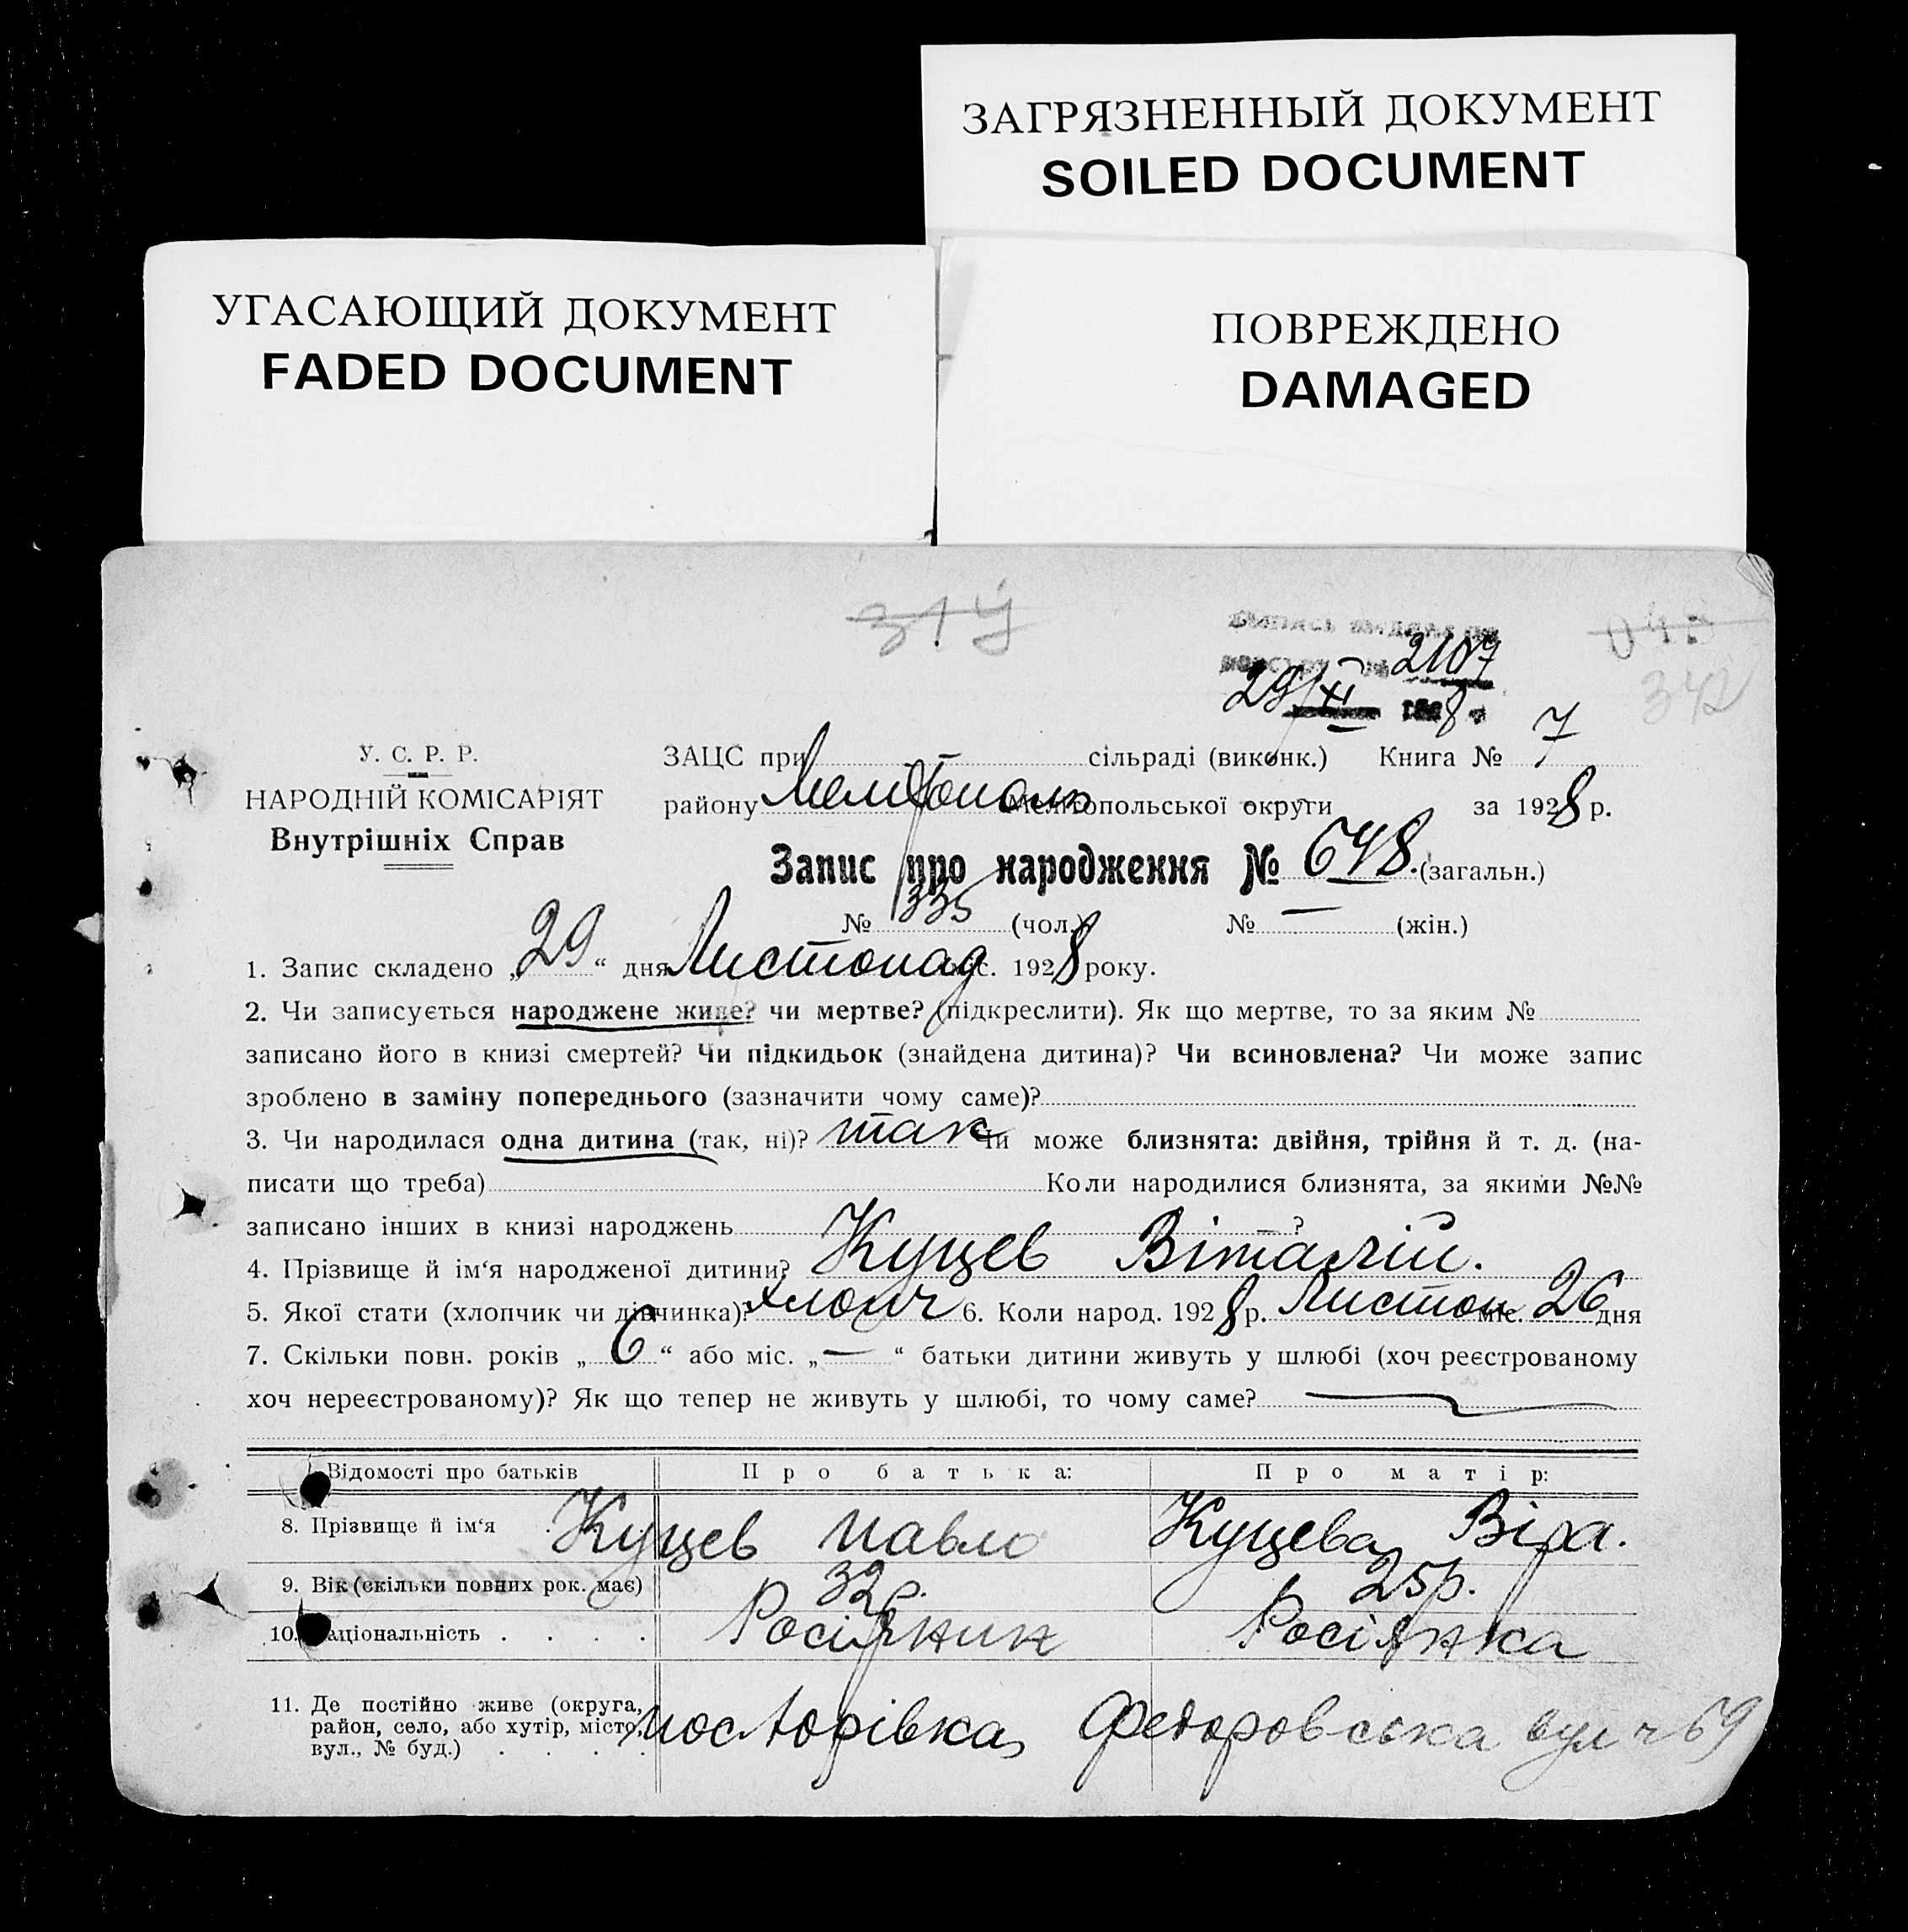 ЗАГРЯЗНЕННЫЙ ДОКУМЕНТ
SOILED DOCUMENT
УГАСАЮЩИЙ ДОКУМЕНТ
FADED DOCUMENT
ПОВРЕЖДЕНО
DAMAGED
342
2107
29/XI 1928
У. С. Р. Р.
НАРОДНІЙ КОМІСАРІЯТ
Внутрішніх Справ
ЗАЦС при сільраді (виконк.) Книга № 7
району Мелітополь Мелітопольської округи за 1928 р.
Запис про народження № 648. (загальн.)
№ 335 (чол.) № — (жін.)
1. Запис складено „29“ дня Листопад міс. 1928 року.
2. Чи записується народжене живе? чи мертве? (підкреслити). Як що мертве, то за яким №
записано його в книзі смертей? Чи підкидьок (знайдена дитина)? Чи всиновлена? Чи може запис
зроблено в заміну попереднього (зазначити чому саме)?
3. Чи народилася одна дитина (так, ні)? так Чи може близнята: двійня, трійня й т. д. (на-
писати що треба) Коли народилися близнята, за якими №№
записано інших в книзі народжень — ?
4. Прізвище й ім‘я народженої дитини? Куцев Віталій.
5. Якої стати (хлопчик чи дівчинка)? хлопч 6. Коли народ. 1928 р. Листоп міс. 26 дня
7. Скільки повн. років „6“ або міс. „—“ батьки дитини живуть у шлюбі (хоч реєстрованому
хоч нереєстрованому)? Як що тепер не живуть у шлюбі, то чому саме? —
Відомості про батьків Про батька: Про матір:
8. Прізвище й ім‘я Куцев Павло Куцева Віра.
9. Вік (скільки повних рок. має) 32 р. 25 р.
10. Національність . . . . Росіянин Росіянка
11. Де постійно живе (округа,
район, село, або хутір, місто,
вул., № буд.) . . . . Федоровська вул ч 69